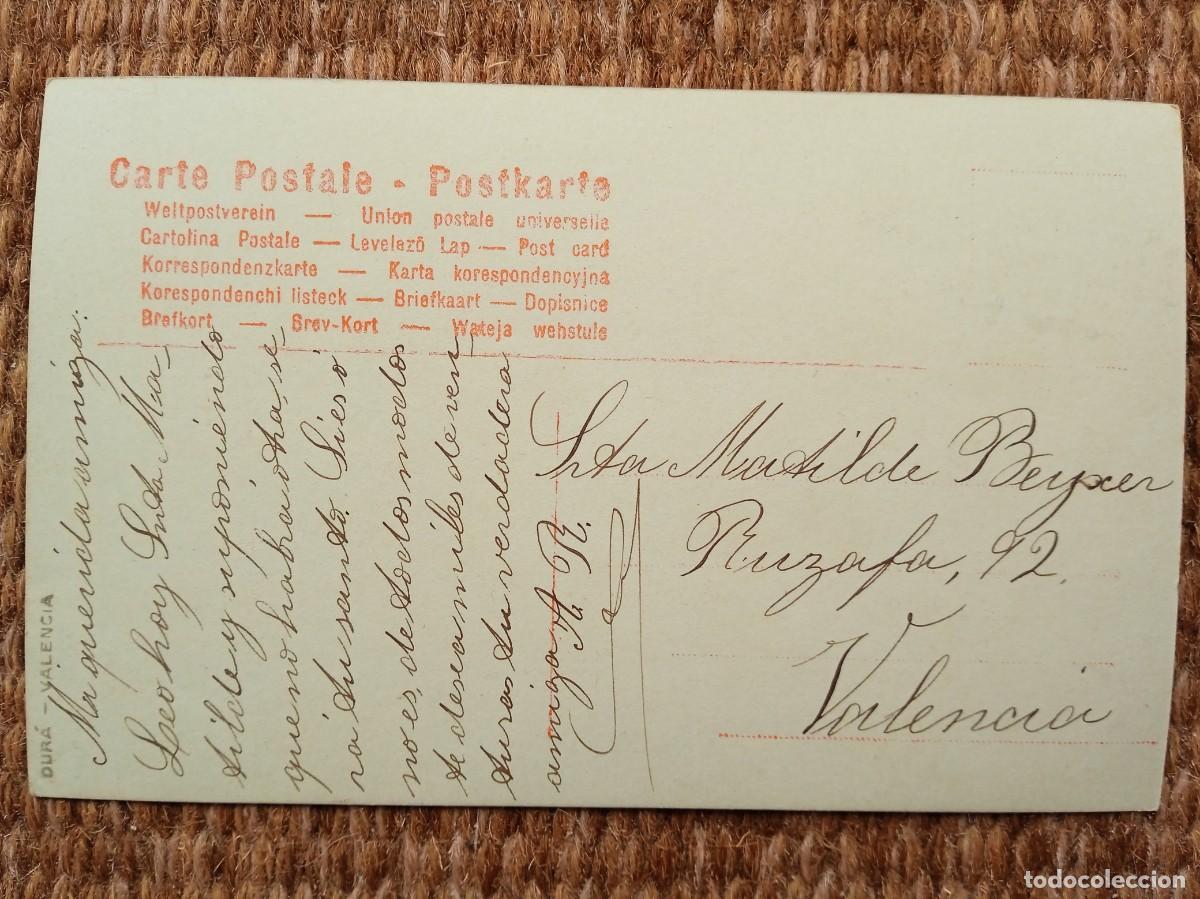 Carte Postale - Postkarte
Weltpostverein — Union postale universelle
Cartolina Postale — Levelező Lap — Post card
Korrespondenzkarte — Karta korespondencyjna
Korespondenchi listeck — Briefkaart — Dopisnice
Brefkort — Brev-Kort — Wateja wehstule
DURÁ - VALENCIA
Mi querida amiga:
Leo hoy Snta Ma-
tilde y suponiendo
que no habrá otra, se-
rá tu santo. Si es ó
no es, de todos modos
te desea miles de ven
turas tu verdadera
amiga A. R.
Srta Matilde Beyxer
Ruzafa, 92.
Valencia
todocoleccion